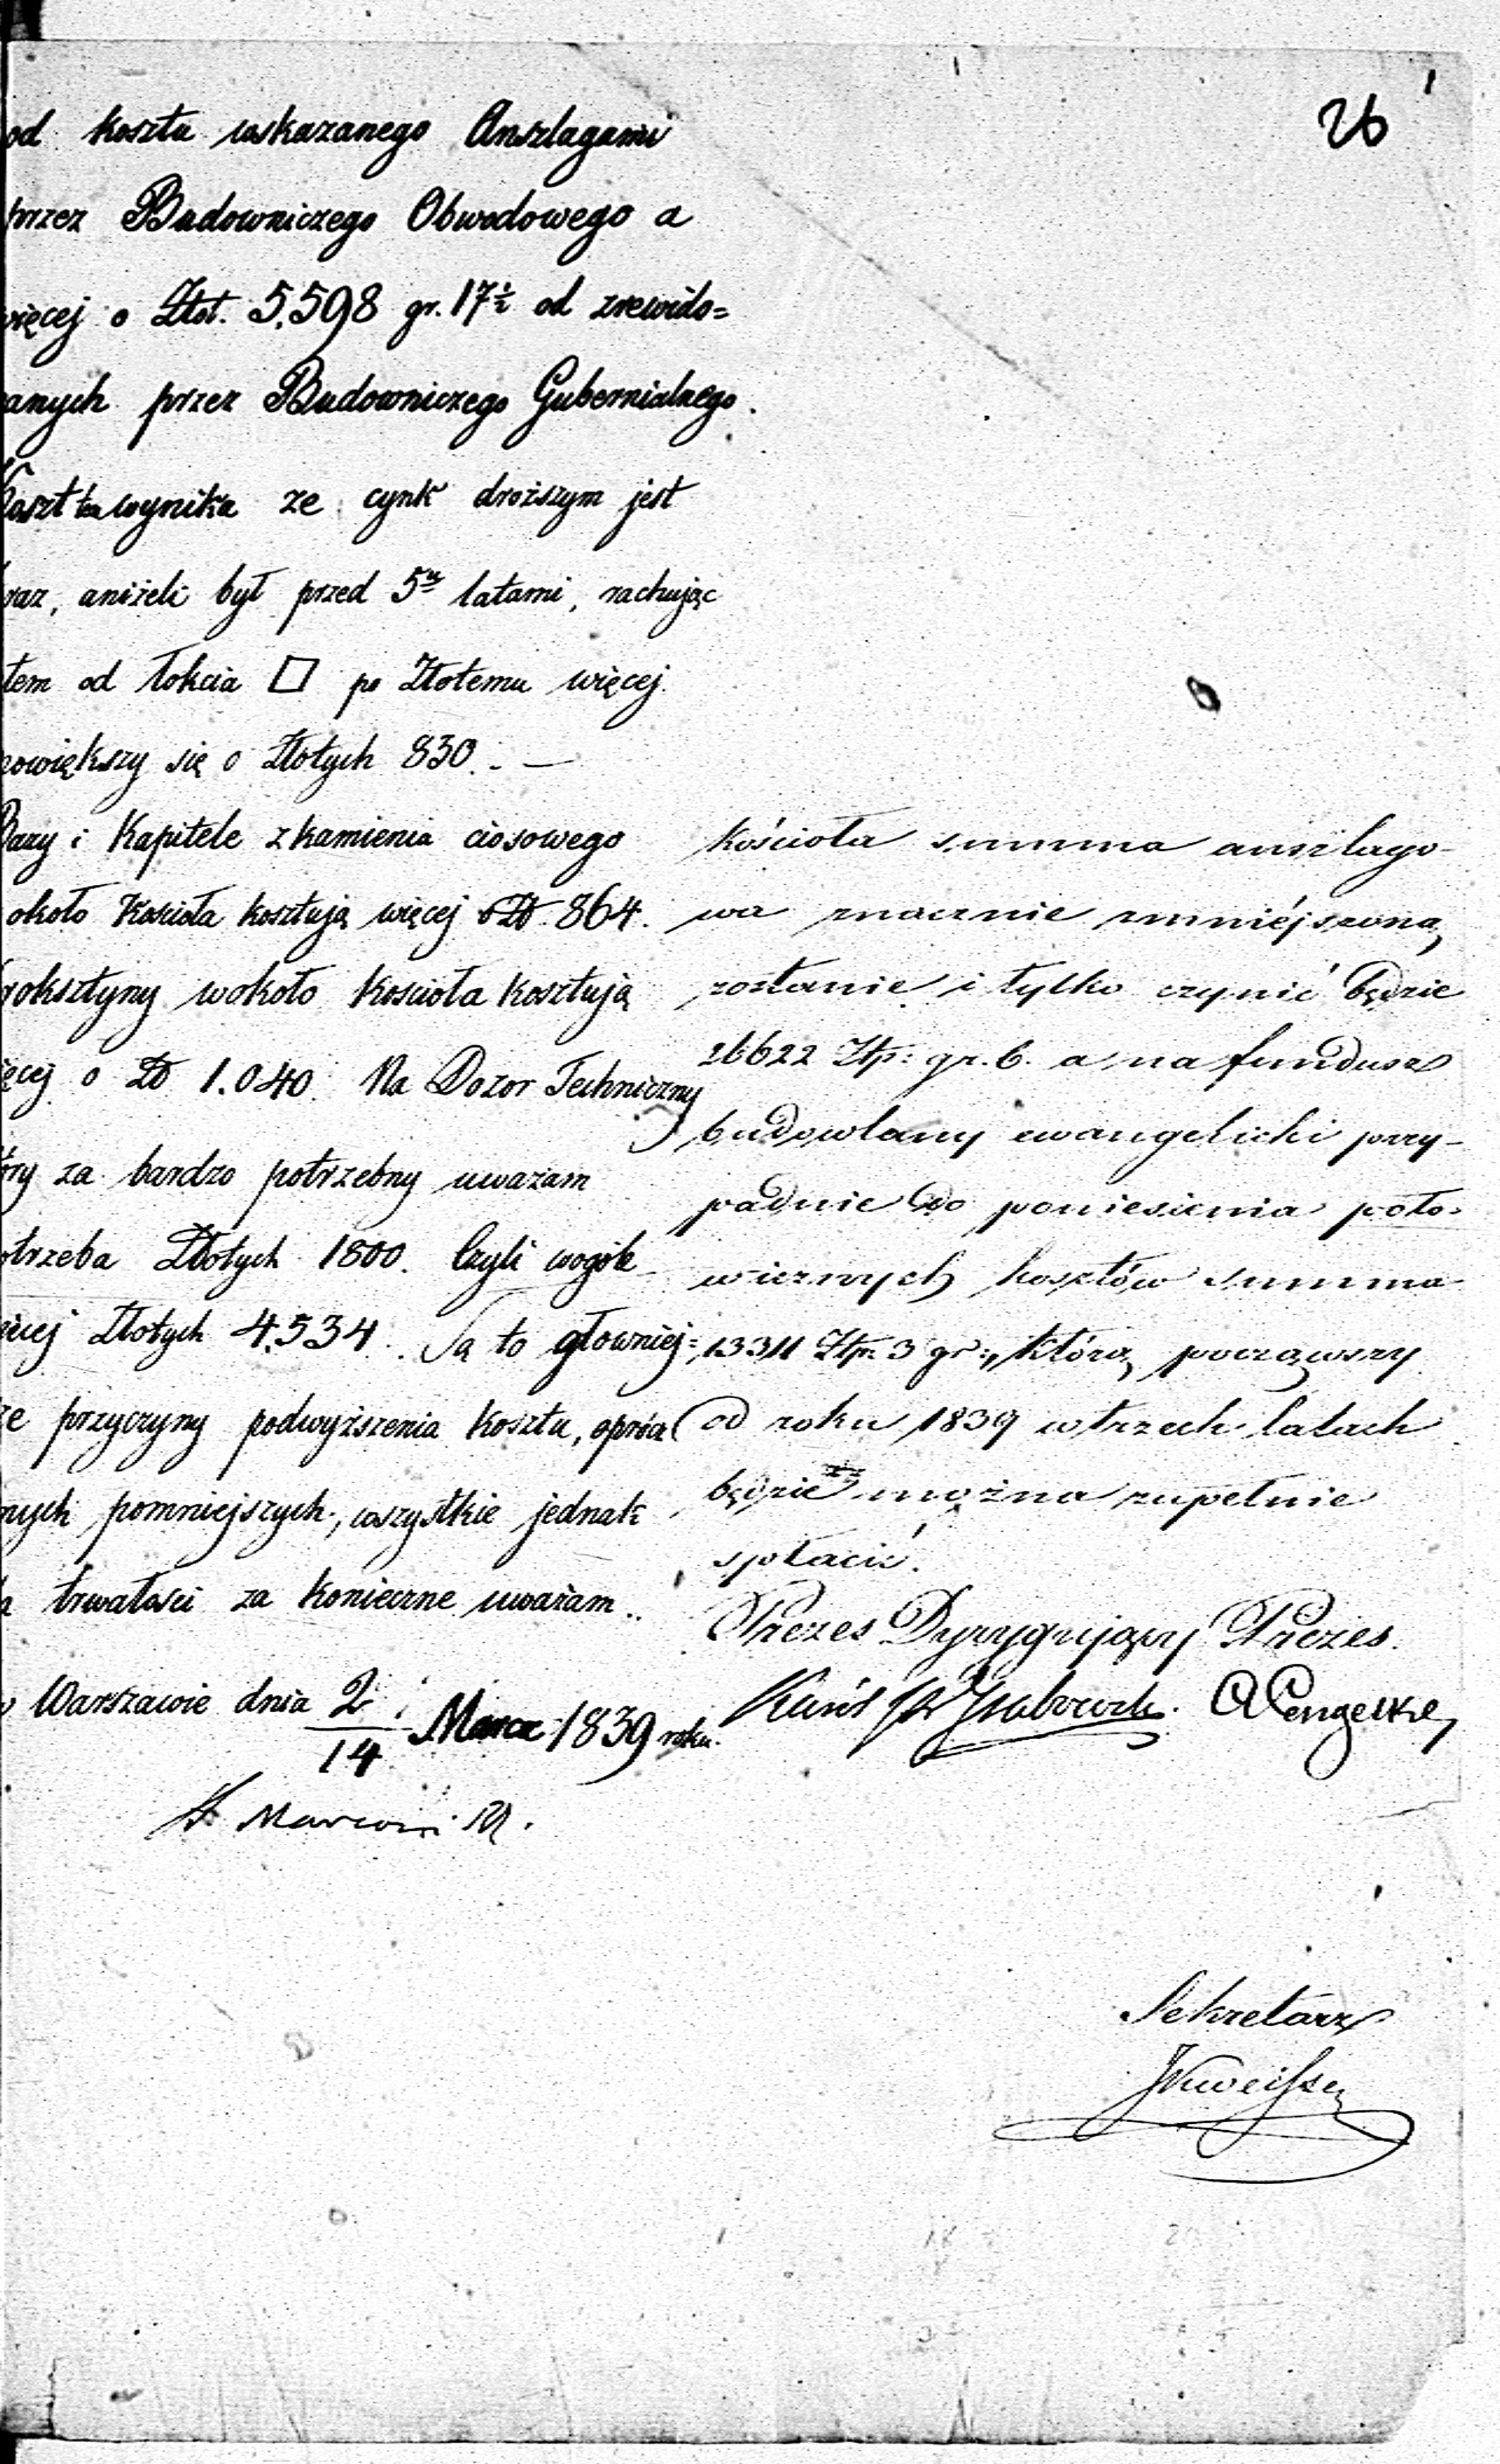 26
od kosztu wskazanego Anszlagami
przez Budowniczego Obwodowego a
więcej o Złot. 5.598 gr. 17½ od zrewido=
anych przez Budowniczego Gubernialnego.
Koszt ten wynika ze cynk droższym jest
raz, aniżeli był przed 5u latami, rachując
tem od łokcia □ po Złotemu więcej.
powiększy się o Złotych 830. —
Bazy i Kapitele z kamienia ciosowego
około Kościoła kosztują więcej o Zł. 864.
goksztyny wokoło Kościoła kosztują
ięcej o Zł 1.040. Na Dozor Techniczny
óry za bardzo potrzebny uważam
otrzeba Złotych 1800. Czyli wogóle
ięcej Złotych 4.534. Są to głowniej=
ze przyczyny podwyższenia kosztu, oprócz
nych pomniejszych, wszystkie jednak
a trwałości za konieczne uważam..
w Warszawie dnia 2/14 Marca 1839 roku.
H Marconi
kościoła summa anszlago-
wa znacznie zmniéjszoną
zostanie i tylko czynić będzie
26622 Złp: gr. 6. a na fundusz
budowlany ewangelicki przy-
padnie do poniesienia poło-
wicznych kosztów summa
13311 Złp. 3 gr:, którą począwszy
od roku 1839 w trzech latach
będzie można zupełnie
spłacić.
Prezes Dyrygujący Prezes.
Sekretarz